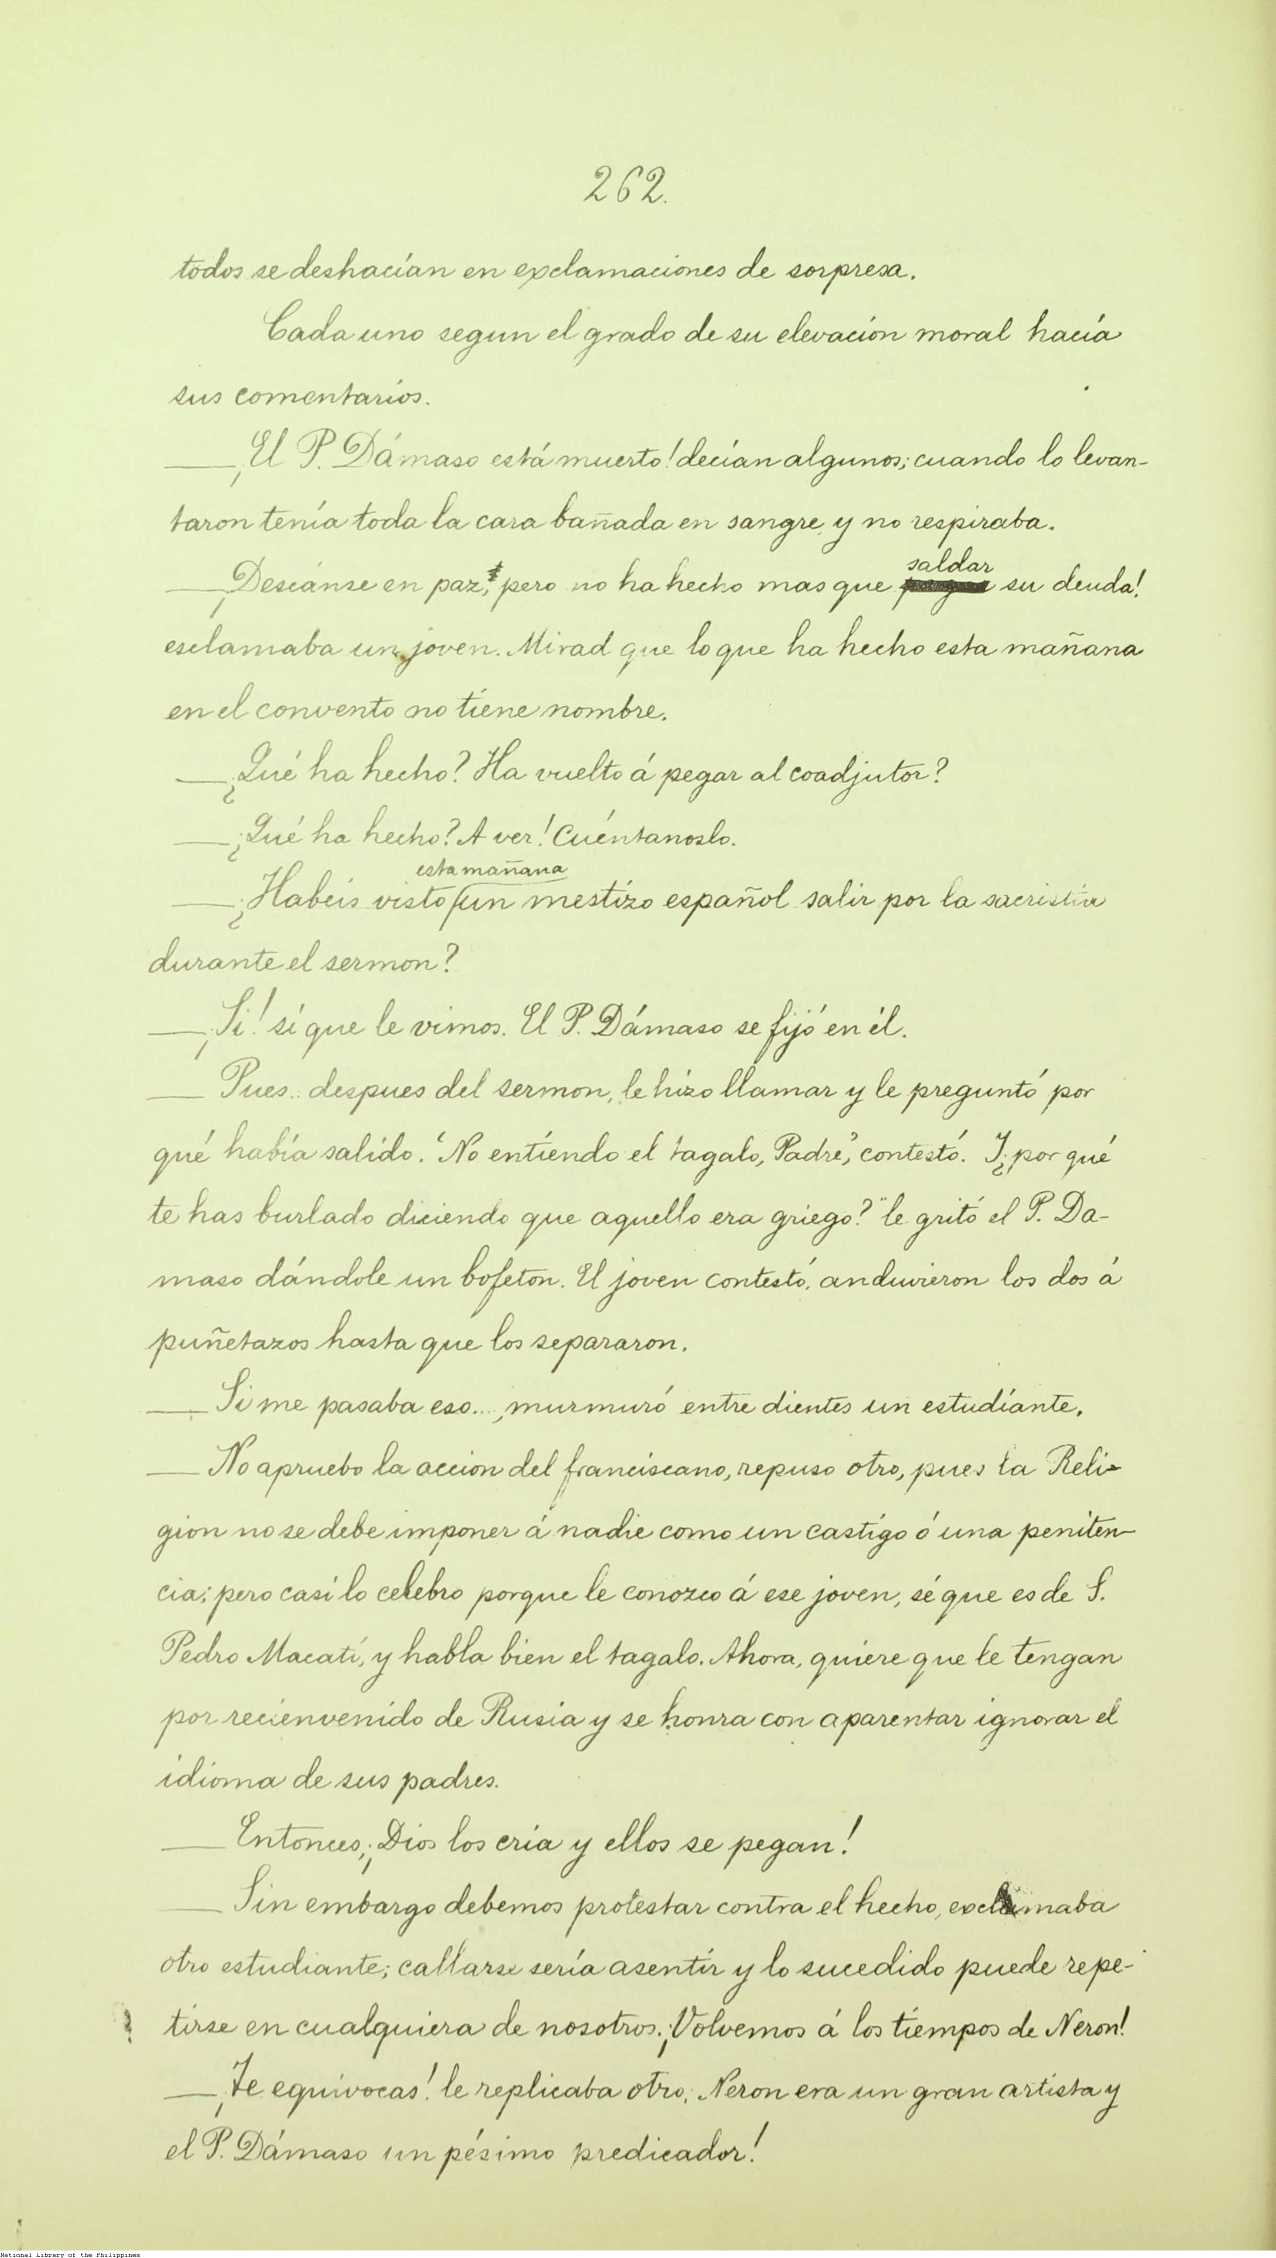 262.
todos se deshacían en exclamaciones de sorpresa.
Cada uno segun el grado de su elevación moral hacía
sus comentarios.
—¡El P. Dámaso está muerto! decían algunos; cuando lo levan-
taron tenía toda la cara bañada en sangre y no respiraba.
saldar
—¡Descánse en paz, pero no ha hecho mas que su deuda!
esclamaba un joven. Mirad que lo que ha hecho esta mañana
en el convento no tiene nombre.
—¿Qué ha hecho? Ha vuelto á pegar al coadjutor?
—¿Qué ha hecho? A ver! Cuéntanoslo.
esta mañana
—¿Habeis visto un mestizo español salir por la sacristía
durante el sermon?
—¡Si! sí que le vimos. El P. Dámaso se fijó en él.
— Pues.. despues del sermon, le hizo llamar y le preguntó por
qué había salido. "No entiendo el tagalo, Padre", contestó. "Y ¿por qué
te has burlado diciendo que aquello era griego?" le gritó el P. Da-
maso dándole un bofeton. El joven contestó, anduvieron los dos á
puñetazos hasta que los separaron.
— Si me pasaba eso..., murmuró entre dientes un estudiante.
— No apruebo la accion del franciscano, repuso otro, pues la Reli-
gion no se debe imponer á nadie como un castigo ó una peniten-
cia; pero casi lo celebro porque le conozco á ese joven, sé que es de S.
Pedro Macatí, y habla bien el tagalo. Ahora, quiere que le tengan
por recienvenido de Rusia y se honra con aparentar ignorar el
idioma de sus padres.
— Entonces, ¡Dios los cría y ellos se pegan!
— Sin embargo debemos protestar contra el hecho, exclamaba
otro estudiante; callarse sería asentir y lo sucedido puede repe-
tirse en cualquiera de nosotros. ¡Volvemos á los tiempos de Neron!
—¡Te equivocas! le replicaba otro; Neron era un gran artista y
el P. Dámaso un pésimo predicador!
National Library of the Philippines